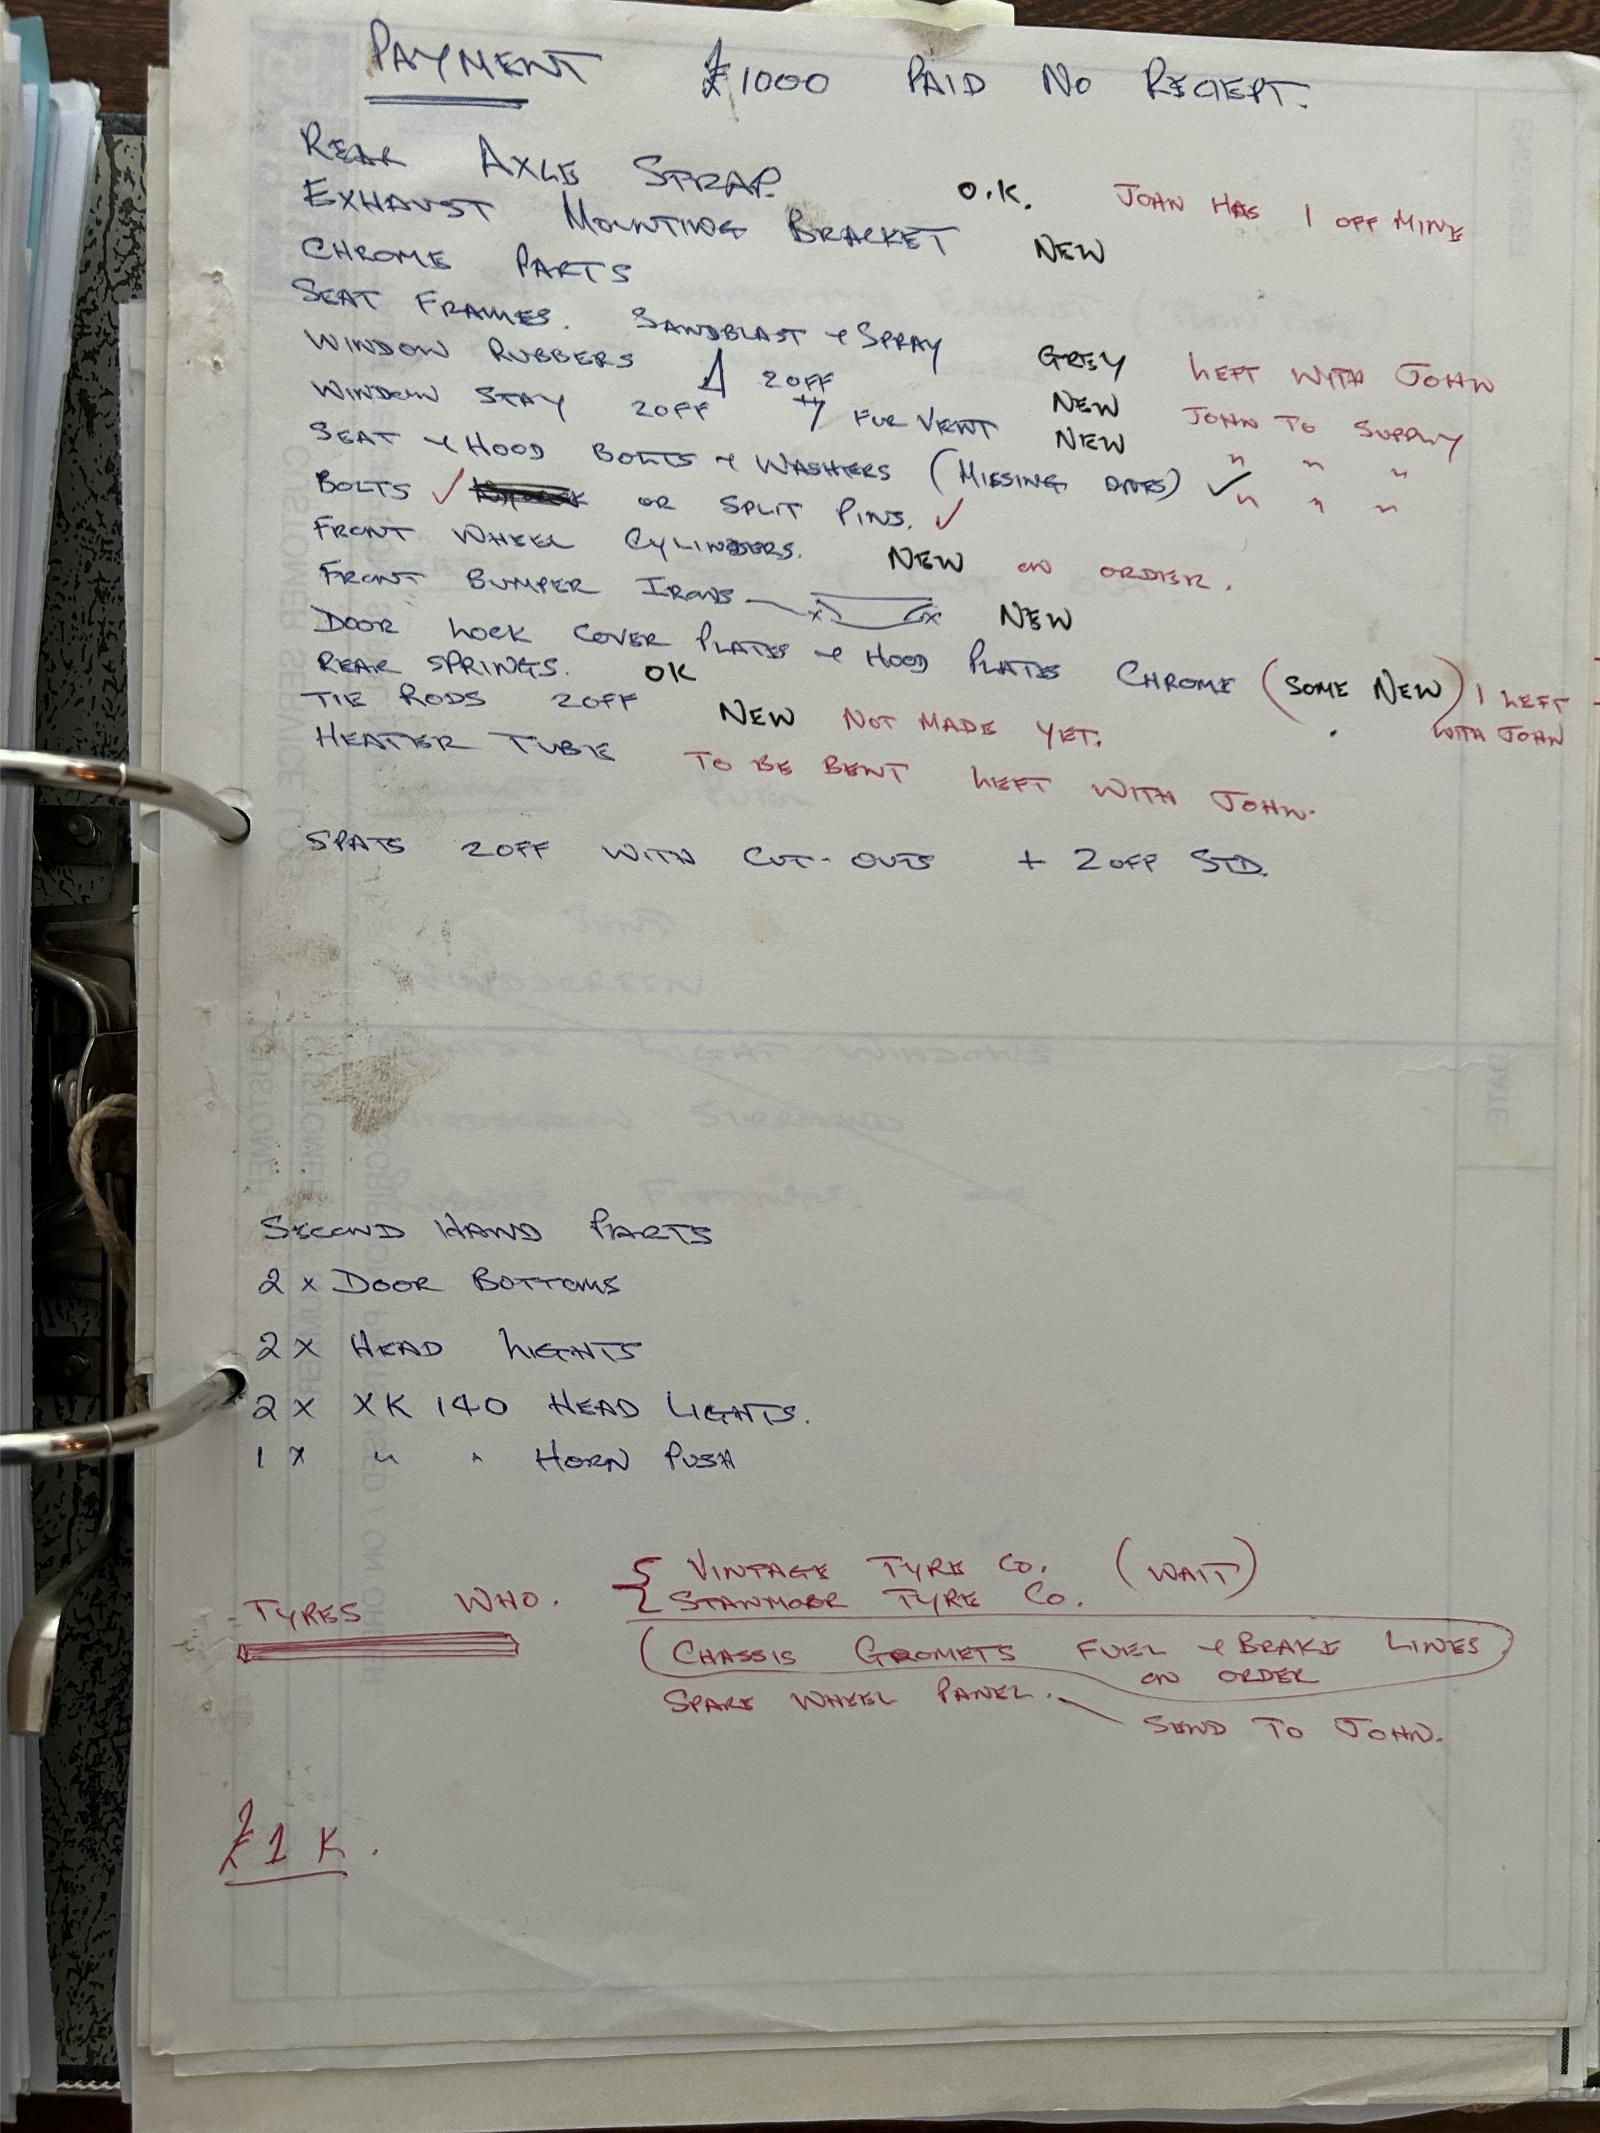 PAYMENT £1000 PAID NO RECIEPT.
REAR AXLE STRAP. O.K. JOHN HAS 1 OFF MINE
EXHAUST MOUNTING BRACKET NEW
CHROME PARTS
SEAT FRAMES. SANDBLAST & SPRAY GREY LEFT WITH JOHN
WINDOW RUBBERS 2 OFF NEW JOHN TO SUPPLY
WINDOW STAY 2 OFF FOR VENT NEW " " "
SEAT & HOOD BOLTS & WASHERS (MISSING ONES) ✓ " " "
BOLTS ✓ OR SPLIT PINS. ✓
FRONT WHEEL CYLINDERS. NEW ON ORDER.
FRONT BUMPER IRONS x x NEW
DOOR LOCK COVER PLATES & HOOD PLATES CHROME (SOME NEW) 1 LEFT WITH JOHN
REAR SPRINGS. OK
TIE RODS 2 OFF NEW NOT MADE YET.
HEATER TUBE TO BE BENT LEFT WITH JOHN.
SPATS 2 OFF WITH CUT-OUTS + 2 OFF STD.
SECOND HAND PARTS
2 x DOOR BOTTOMS
2 x HEAD LIGHTS
2 x XK 140 HEAD LIGHTS.
1 x " " HORN PUSH
TYRES WHO. { VINTAGE TYRE CO. (WAIT)
STANMORE TYRE CO.
(CHASSIS GROMETS FUEL & BRAKE LINES
ON ORDER
SPARE WHEEL PANEL.
SEND TO JOHN.
£1K.